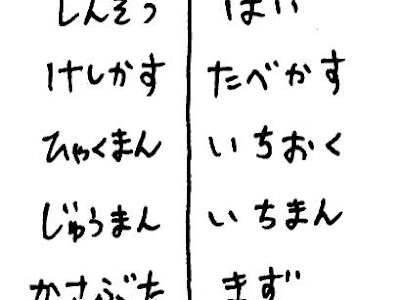 しんぞう はい
けしかす たべかす
ひゃくまん いちおく
じゅうまん いちまん
かさぶた まず